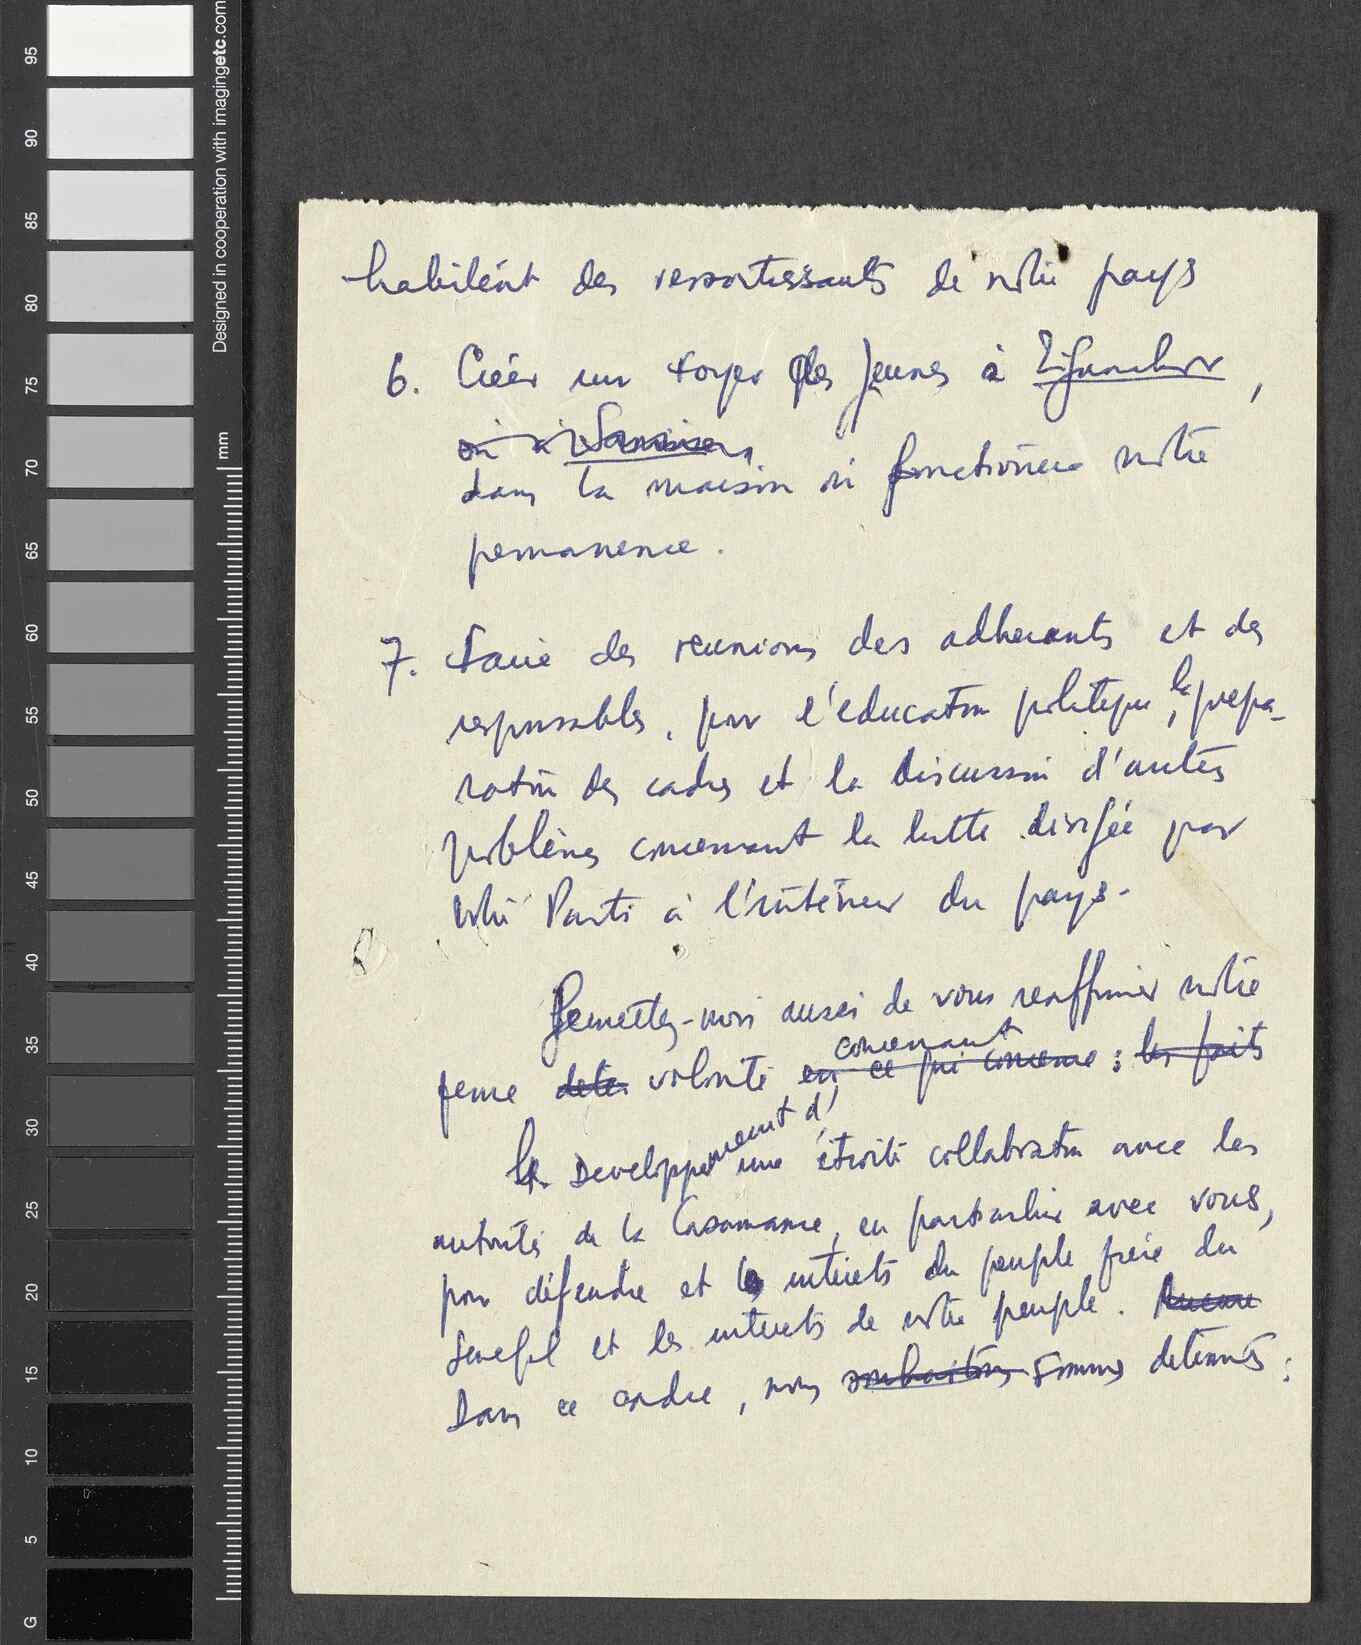 95
90
85
80
75
70
65
60
55
50
45
40
35
30
25
20
15
10
5
G
Designed in cooperation with imagingetc.com
mm
habitent des ressortissants de notre pays
6. Créer un foyer des jeunes à Ziguinchor,
ou à
dans la maison où fonctionera notre
permanence.
7. Faire des reunions des adherants et des
responsables, pour l'education politique, la prepa-
ration des cadres et la discussion d'autres
problèmes concernant la lutte dirigée par
notre Parti à l'intérieur du pays.
Permettez-moi aussi de vous reaffirmer notre
concernant
ferme deter volonté en ce qui concerne : les faits
le Developpement d'une étroite collaboration avec les
autorités de la Casamance, en particulier avec vous,
pour défendre et les interets du peuple frère du
Senegal et les interets de notre peuple. Aucune
Dans ce cadre, nous souhaitons sommes determinés :